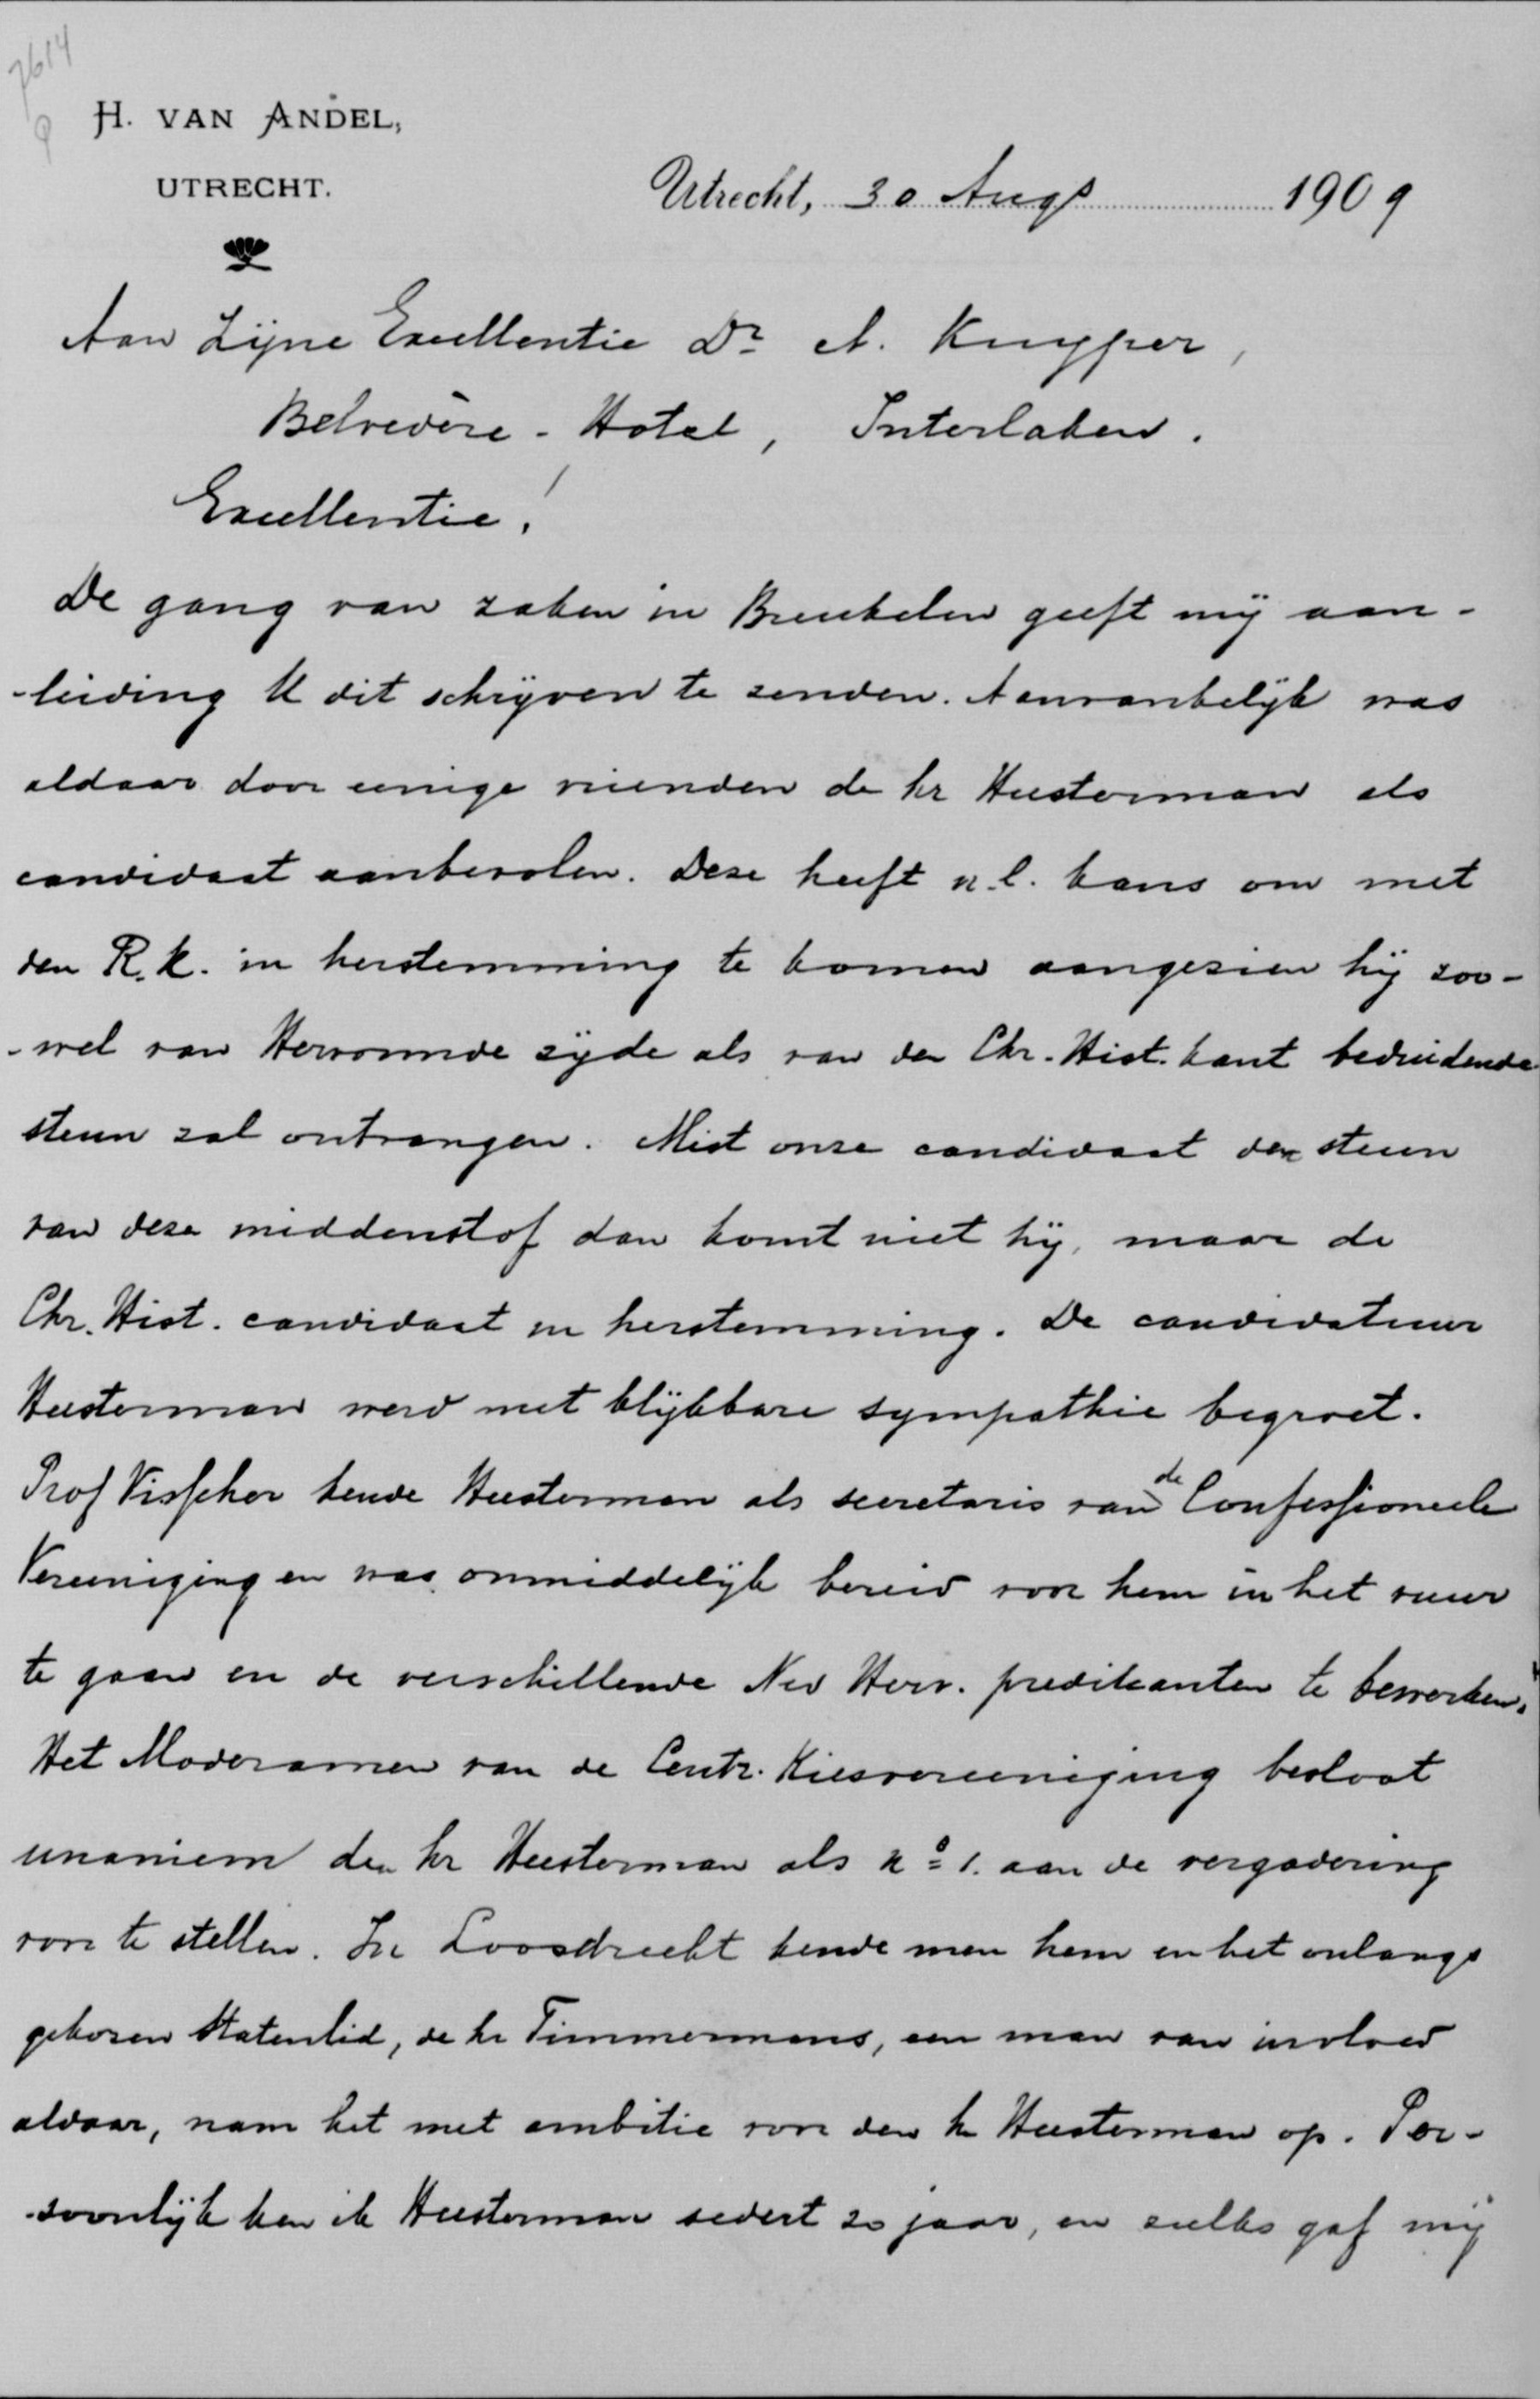 7614
H. VAN ANDEL,
UTRECHT.
Utrecht, 30 Augs 1909
Aan Zijne Excellentie Dr A. Kuyper,
Belvedère-Hotel, Interlaken.
Excellentie!
De gang van zaken in Breukelen geeft mij aan-
-leiding U dit schrijven te zenden. Aanvankelijk was
aldaar door eenige vrienden de hr Heesterman als
candidaat aanbevolen. Deze heeft n.l. kans om met
den R.k. in herstemming te komen aangezien hij zoo-
-wel van Hervormde zijde als van den Chr.-Hist. kant beduidende
steun zal ontvangen. Mist onze candidaat den steun
van deze middenstof dan komt niet hij, maar de
Chr. Hist. candidaat in herstemming. De candidatuur
Heesterman werd met blijkbare sympathie begroet.
Prof Visscher kende Heesterman als secretaris van de Confessioneele
Vereeniging en was onmiddelijk bereid voor hem in het vuur
te gaan en de verschillende Ned Herv. predikanten te bewerken.
Het Moderamen van de Centr. Kiesvereeniging besloot
unaniem den hr Heesterman als no 1. aan de vergadering
voor te stellen. In Loosdrecht kende men hem en het onlangs
gekozen Statenlid, de hr Timmermans, een man van invloed
aldaar, nam het met ambitie voor den hr Heesterman op. Per-
-soonlijk ken ik Heesterman sedert 20 jaar, en zulks gaf mij